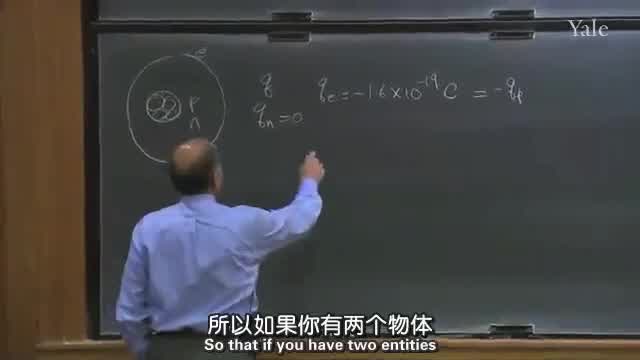 Yale
e
q qe = -1.6×10⁻¹⁹ C = -qp
P
n
qn = 0
所以如果你有两个物体
So that if you have two entities